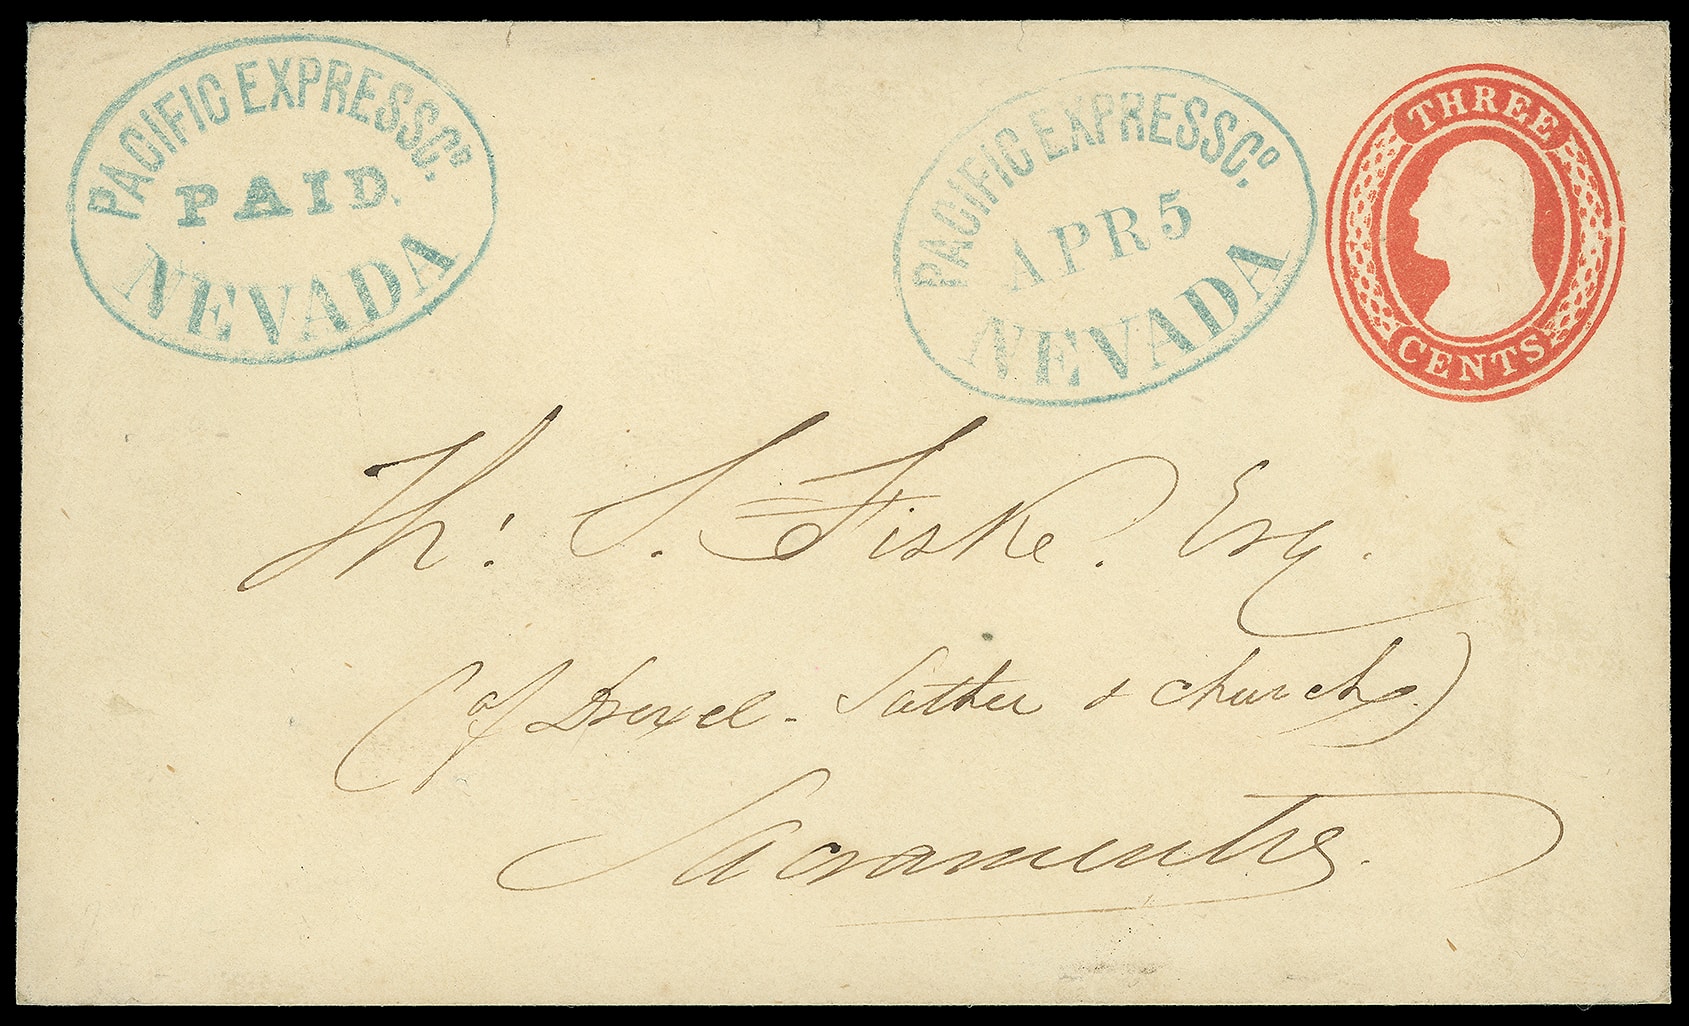 PACIFIC EXPRESS Co.
PAID.
NEVADA
PACIFIC EXPRESS Co.
APR 5
NEVADA
THREE
CENTS
Th: S. Fiske. Esq.
(of Drexel - Sather & Church.)
Sacramento.